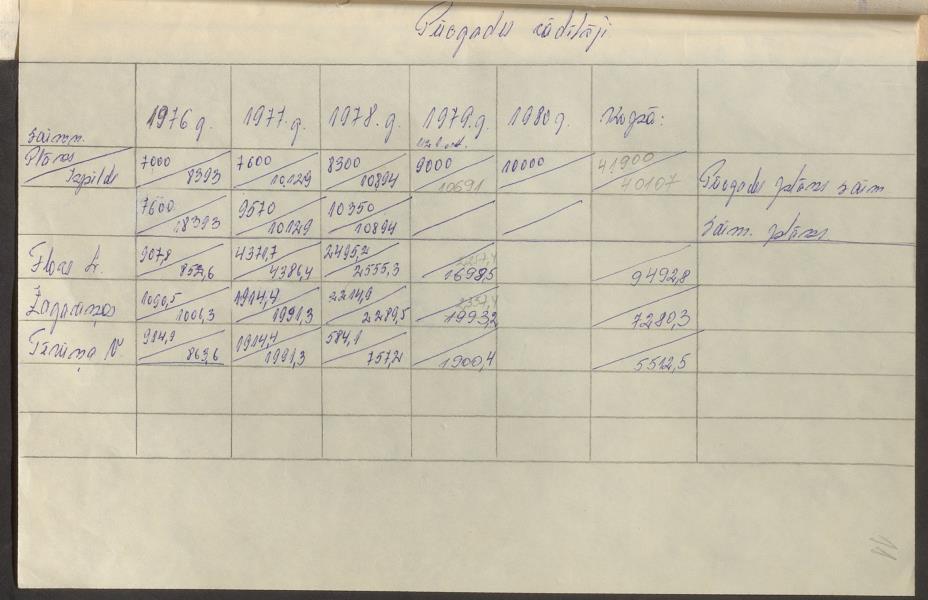 Piecgades rādītāji
1976 g. 1977. g. 1978. g. 1979. g. 1980 g. Kopā:
saimn.
Plāns 7000 7600 8300 9000 10000 41900
Izpilde 8393 10129 10894 10691 40107 Piecgades plāns saim
7600 9570 10350
18393 10129 10894 Saim. plāns.
907,8 4371,7 2495,2
852,6 4386,4 2555,3 1698,5 9492,8
Zagorskas 1090,5 1914,4 2214,9
1006,3 1991,3 2289,5 1993,2 7280,3
914,9 1914,4 584,1
863,6 1991,3 757,2 1900,4 5512,5
11